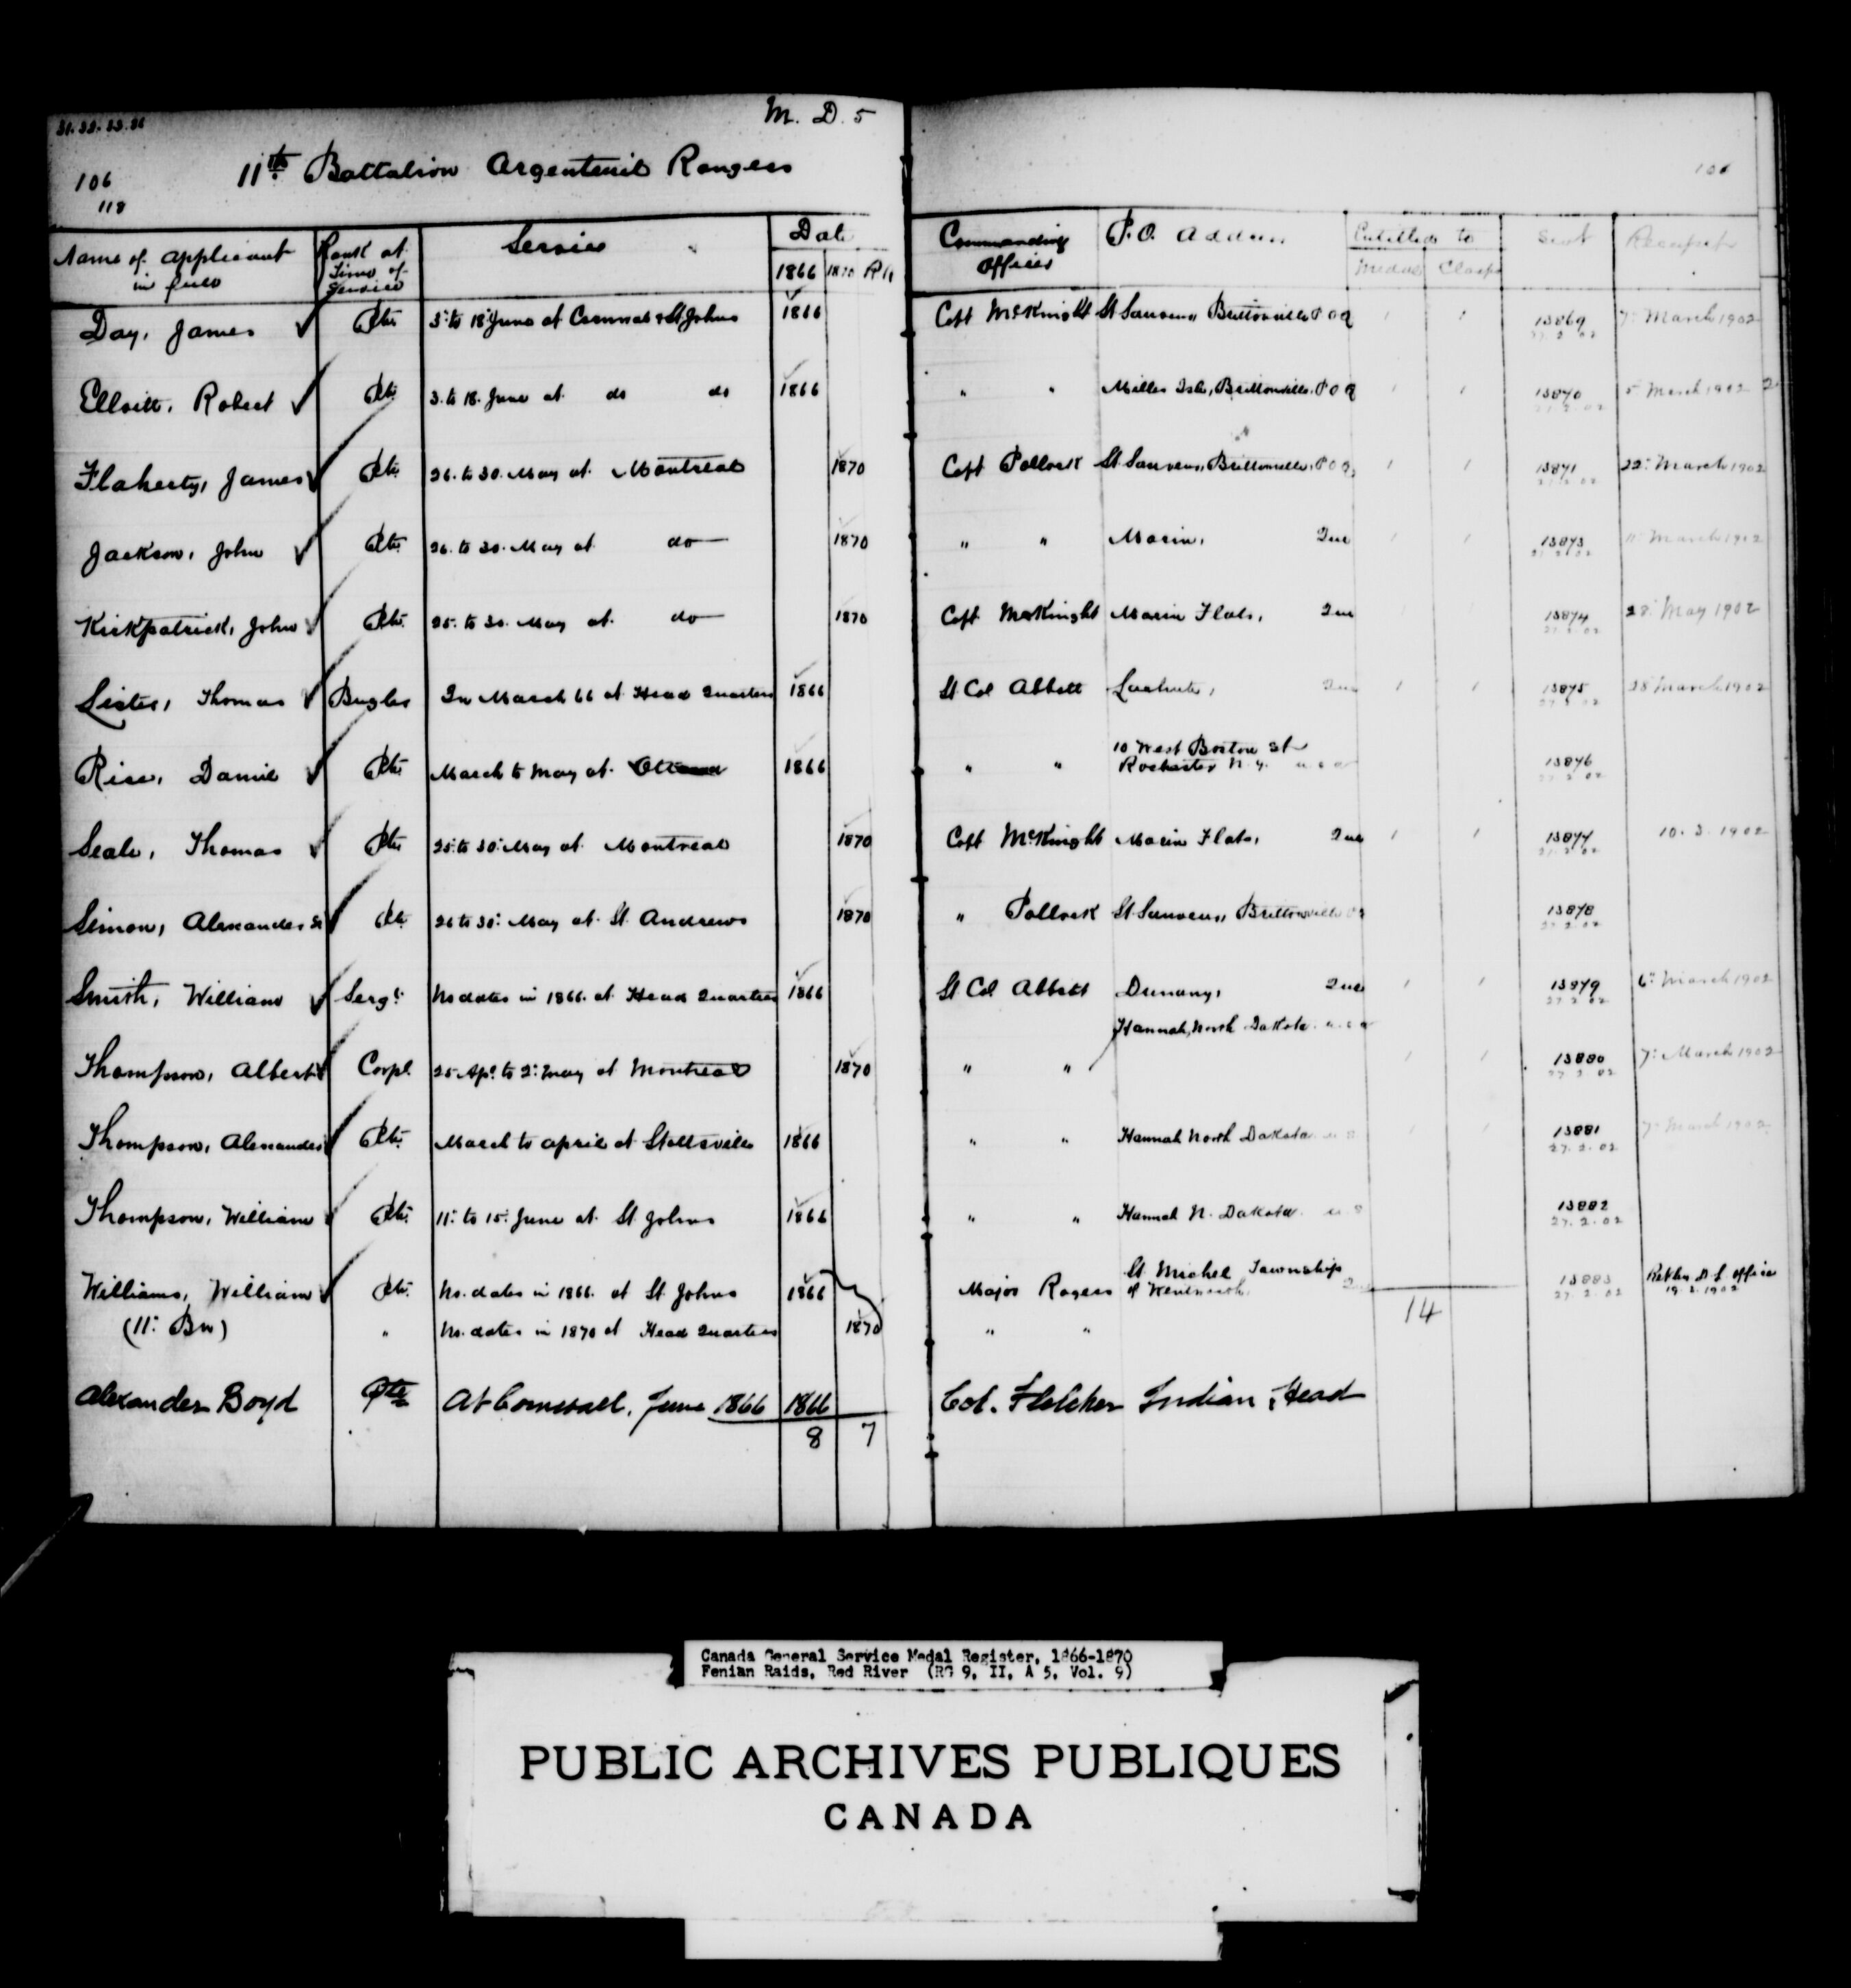 M. D. 5
106
118
11th Battalion Argenteuil Rangers
106
Name of applicant in full Rank at Time of Service Service Date 1866 1870 Commanding Officer P.O. Address Entitled to Medal Clasps Sent Receipt
Day, James Pte 3. to 18. June at Cornwall & St Johns 1866 Capt McKnight St Sauveur, Brittonville P O Q 13869 27.2.02 7: March 1902
Elloitt, Robert Pte 3. to 18. June at do do 1866 " " Milles Isle, Brittonville, P O Q 13870 27.2.02 5 March 1902
Flaherty, James Pte 26. to 30. May at Montreal 1870 Capt Pollock St Sauveur, Brittonville, P O Q 13871 27.2.02 22: March 1902
Jackson, John Pte 26. to 30. May at do 1870 " " Morin, Que 13873 27.2.02 11 March 1902
Kirkpatrick, John Pte 25. to 30. May at do 1870 Capt McKnight Morin Flats, Que 13874 27.2.02 28: May 1902
Lister, Thomas Bugler In March 66 at Head Quarters 1866 Lt Col Abbott Lachute, Que 13875 27.2.02 28 March 1902
10 West Boston St
Rice, Daniel Pte March to May at 1866 " " Rochester N.Y. U S A 13876 27.2.02
Seale, Thomas Pte 25: to 30: May at Montreal 1870 Capt McKnight Morin Flats, Que 13877 27.2.02 10. 3. 1902
Simon, Alexander Sr Pte 26 to 30: May at St. Andrews 1870 " Pollock St Sauveur, Brittonville 13878 27.2.02
Smith, William Sergt. No dates in 1866. at Head Quarters 1866 Lt Col Abbott Dunany, Que 13879 27.2.02 6: March 1902
Hannah, North Dakota. U. S. A
Thompson, Albert Corpl. 25 Apl. to 2: May at Montreal 1870 " " 13880 27.2.02 7: March 1902
Thompson, Alexander Pte March to April at Stottsville 1866 " " Hannah North Dakota U S 13881 27.2.02 7: March 1902
Thompson, William Pte 11: to 15: June at St. Johns 1866 " " Hannah N. Dakota. U S 13882 27.2.02
Williams, William Pte No. dates in 1866. at St Johns 1866 Major Rogers St Michel Township of Wentworth Que 13883 27.2.02 Ret by D L office 19.3.1902
(11: Bn) " No. dates in 1870 at Head Quarters 1870 " " 14
Alexander Boyd Pte At Cornwall, June 1866 1866 Col. Fletcher Indian Head
8 7
Canada General Service Medal Register, 1866-1870
Fenian Raids, Red River (RG 9, II, A 5, Vol. 9)
PUBLIC ARCHIVES PUBLIQUES
CANADA